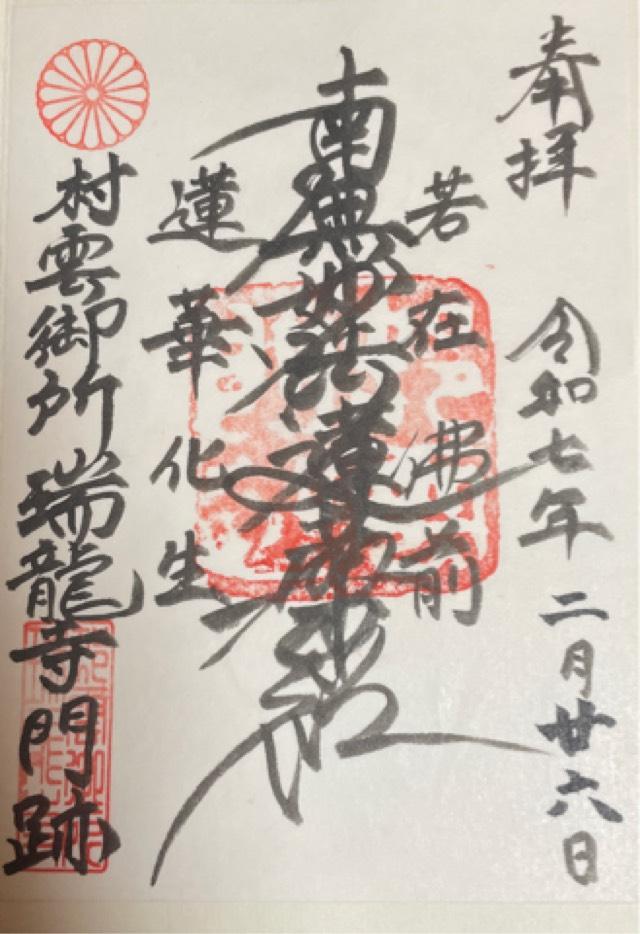 奉拝 令和七年 二月廿六日
若在佛前
南無妙法蓮華経
蓮華化生
村雲御所瑞龍寺門跡